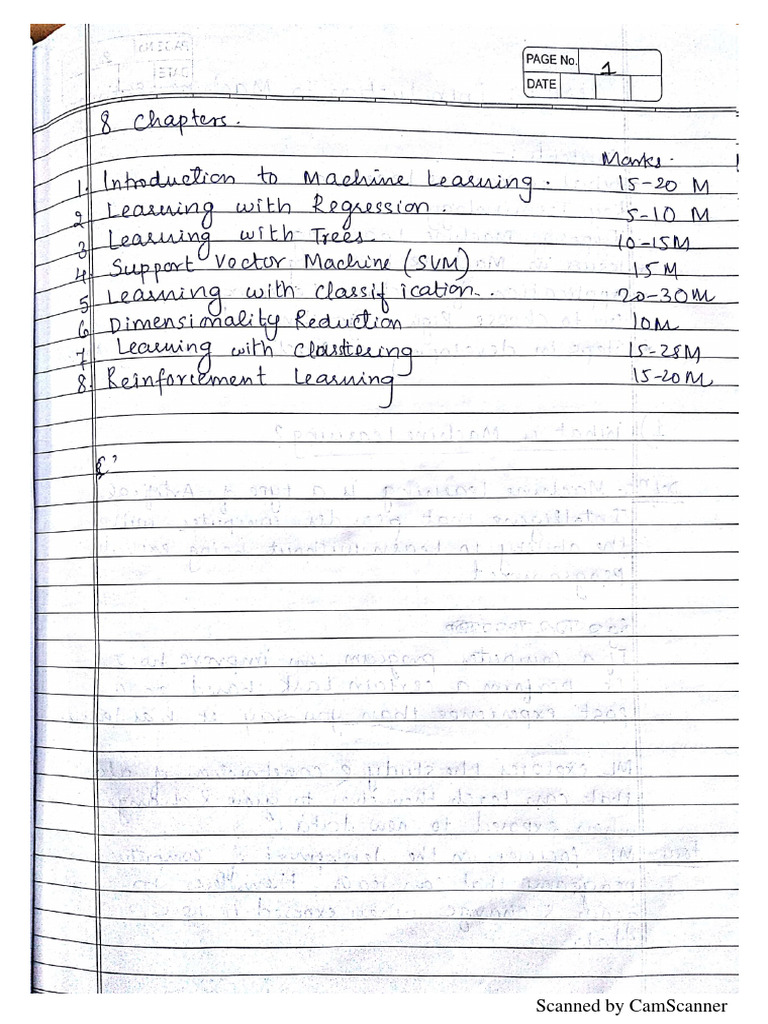 PAGE No. 1
DATE
8 Chapters.
Marks.
1. Introduction to Machine Learning. 15-20 M
2 Learning with Regression. 5-10 M
3 Learning with Trees. 10-15M
4. Support Vector Machine (SVM) 15M
5 Learning with Classification. 20-30M
6 Dimensionality Reduction 10M
7 Learning with Clasterering 15-25M
8. Reinforcement Learning 15-20M
Scanned by CamScanner